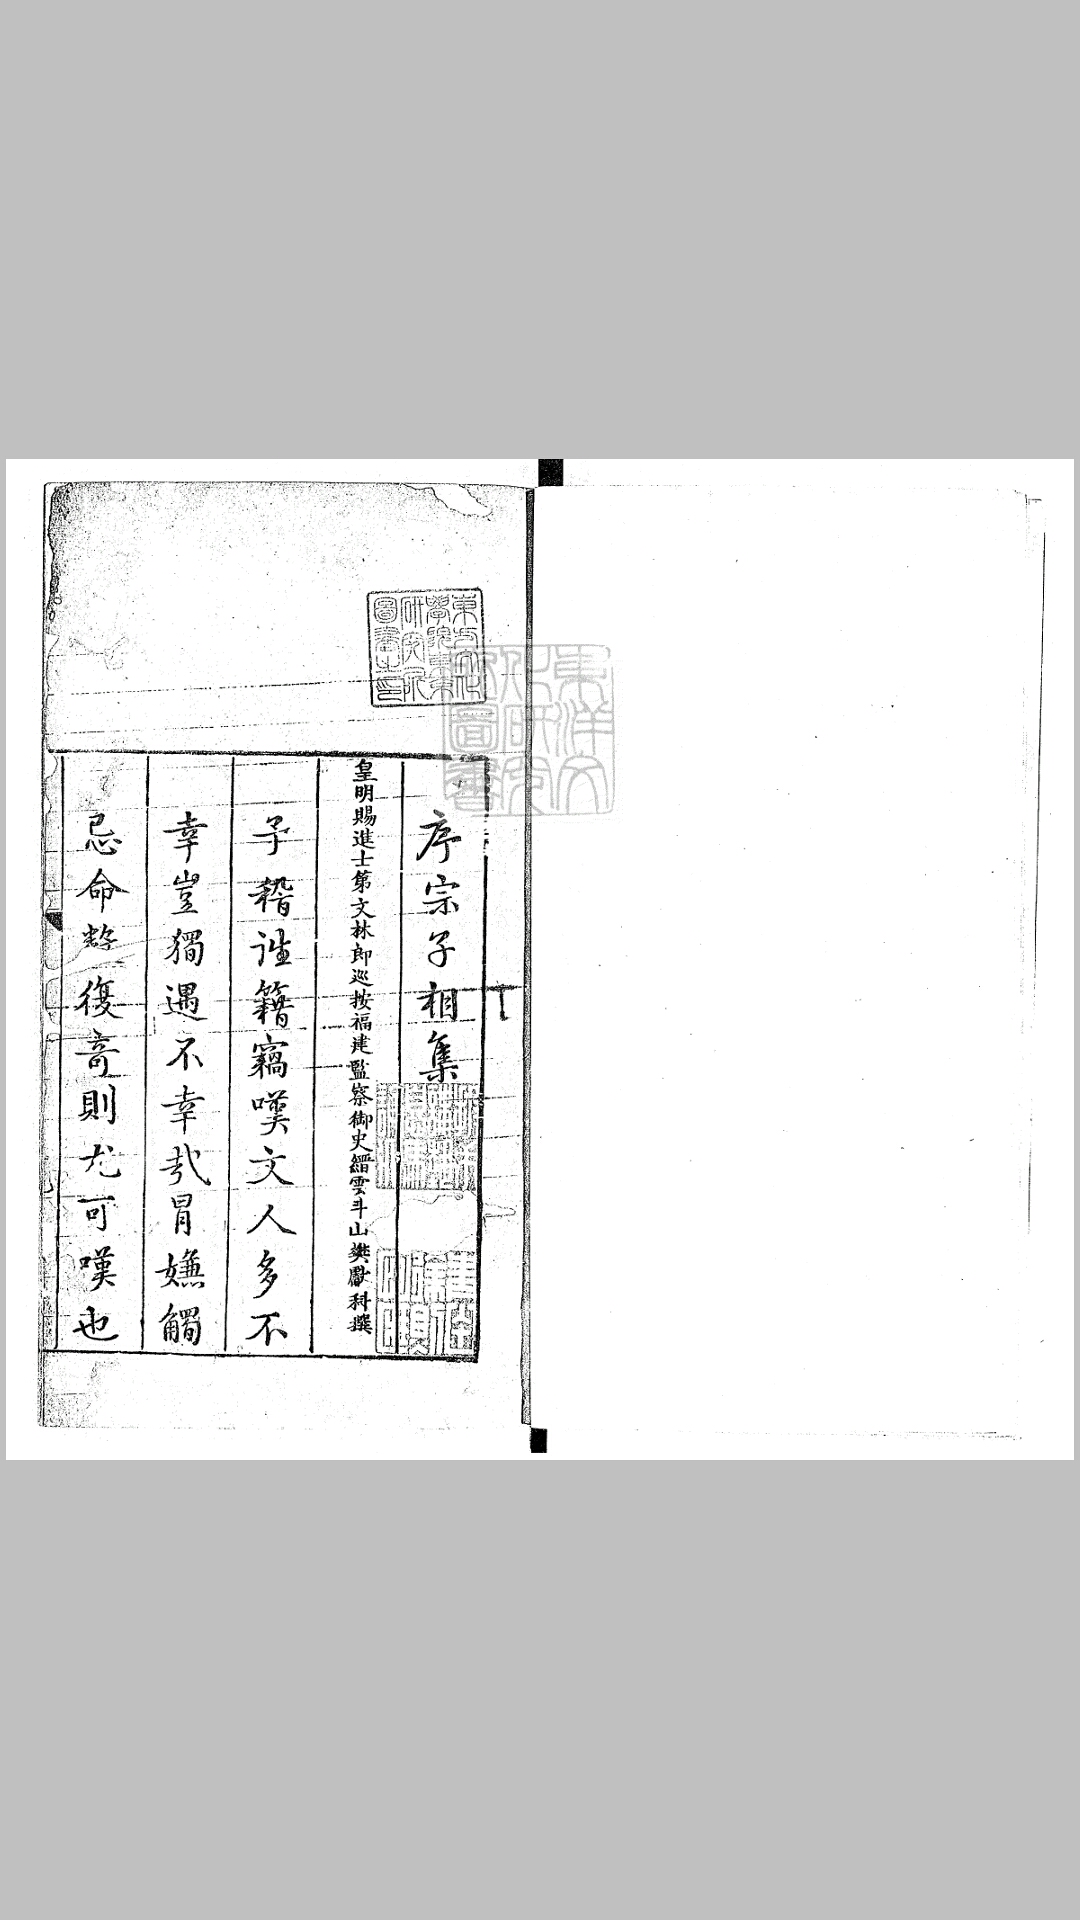 序宗子相集
皇明賜進士第文林郎巡按福建監察御史縉雲斗山樊獻科撰
予稽迬籍竊嘆文人多不
幸豈獨遇不幸㢤冒嫌觸
忌命數復奇則尤可嘆也
東方文化
學院東京
研究所
圖書之印
東洋文
化研究
所圖書